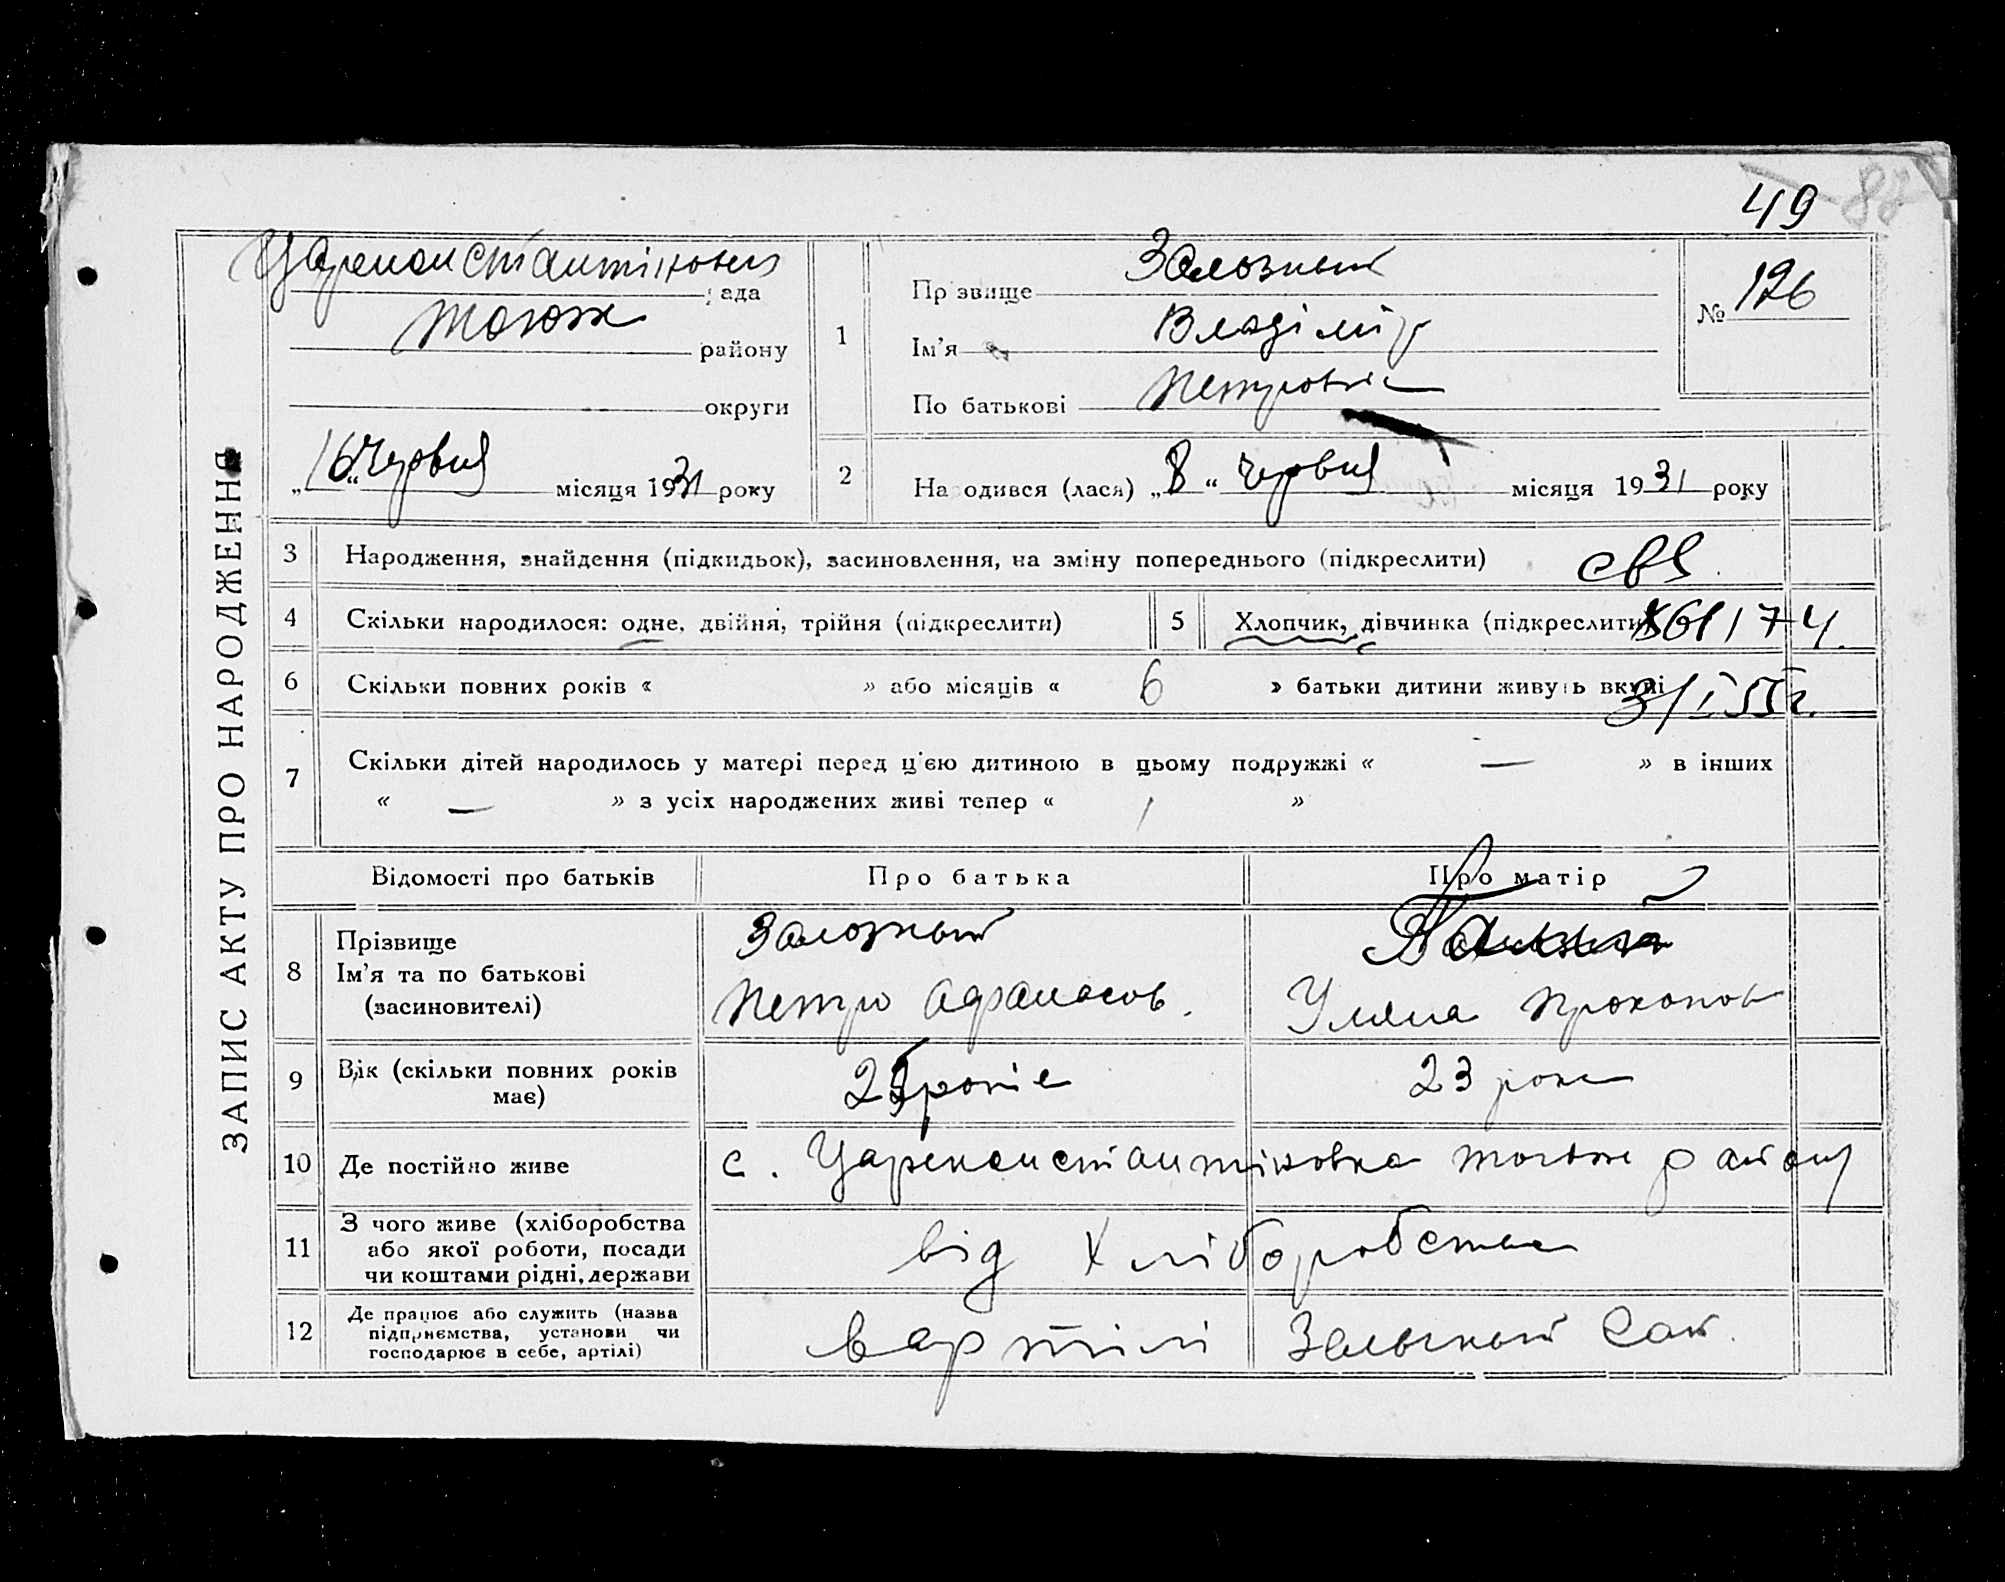 49
ЗАПИС АКТУ ПРО НАРОДЖЕННЯ
рада
тогож району
округи
„16“ Червня місяця 1931 року
1
Прізвище Залозный
Ім'я Владімір
По батькові Петровіч
№ 126
2
Народився (лася) „8“ червня місяця 1931 року
3 Народження, знайдення (підкидьок), засиновлення, на зміну попереднього (підкреслити)
4 Скільки народилося: одне, двійня, трійня (підкреслити)
5 Хлопчик, дівчинка (підкреслити)
6 Скільки повних років « » або місяців « 6 » батьки дитини живуть вкупі
3/I 55г.
7 Скільки дітей народилось у матері перед ц'єю дитиною в цьому подружжі « — » в інших
« — » з усіх народжених живі тепер « »
Відомості про батьків Про батька Про матір
8 Прізвище
Ім'я та по батькові
(засиновителі)
Залозный
Петро Афанасов.
Уляна Прокопов
9 Вік (скільки повних років має)
років
23 роки
10 Де постійно живе с. Цареконстантіновка тогож району
11 З чого живе (хліборобства
або якої роботи, посади
чи коштами рідні, держави
від Хліборобства
12 Де працює або служить (назва
підприємства, установи чи
господарює в себе, артілі)
в артілі